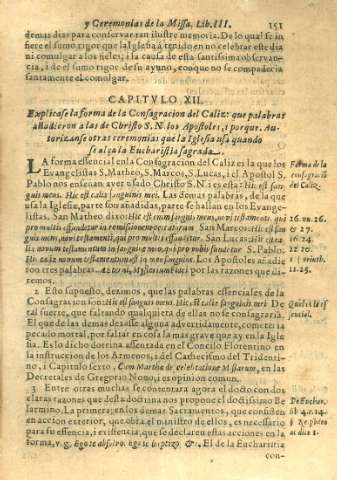 y Ceremonias de la Missa. Lib. III. 151
demas dias para conservar tan ilustre memoria. De lo qual se in
fiere el sumo rigor que la Iglesia à tenido en no celebrar este dia
ni comulgar a los fieles; i la causa de esta santissima observan-
cia, i de el sumo rigor de su ayuno, con que no se compadecia
santamente el comulgar.
CAPITVLO XII.
Explicase la forma de la Consagracion del Caliz: que palabras
añadieron a las de Christo S. N. los Apostoles, i porque. Au-
torizanse otras ceremonias que la Iglesia usa quando
se alça la Eucharistia sagrada.
LA forma essencial en la Consagracion del Caliz es la que los
Evangelistas S. Matheo, S. Marcos, S. Lucas, i el Apostol S.
Pablo nos enseñan aver usado Christo S. N. i es esta: Hic est san
guis meus. Hic est calix sanguinis mei. Las demas palabras, de la que
usa la Iglesia, parte son añadidas, parte se hallan en los Evange-
listas. San Matheo dixo: Hic est enim sanguis meus, novi testamenti, qui
pro multis effundetur in remissionem peccatorum San Marcos: Hic est san-
guis meus, novi testamenti, qui pro multis effundetur. San Lucas: Hic est ca
lix, novum testamentum in sanguine meo, qui pro vobis fundetur S. Pablo:
Hic calix novum testamentum est in meo sanguine. Los Apostoles añadie
ron tres palabras. Æterni, Mysterium Fidei por las razones que di-
remos.
2 Esto supuesto, dezimos, que las palabras essenciales de la
Consagracion son: Hic est sanguis meus. Hic est calix sanguinis mei De
tal suerte, que faltando qualquiera de ellas no se consagraria.
El que de las demas dexasse alguna advertidamente, cometeria
pecado mortal, por faltar en cosa la mas grave que ay en la Igle
sia. Es lo dicho dotrina assentada en el Concilio Florentino en
la instruccion de los Armenos, i del Cathecismo del Tridenti-
no, i Capitulo sexto, Cum Marthæ de celebratione Missarum, en las
Decretales de Gregorio Nono, i es opinion comun.
3 Entre otras muchas se contentarà agora el docto con dos
claras razones que desta dotrina nos propone el doctissimo Be
larmino. La primera; en los demas Sacramentos, que consisten
en accion exterior, que obra el ministro de ellos, es necessario
para su essencia, i existencia, que se declaren essas acciones en la
forma, v. g. Ego te absolvo. ego te baptizo &c. El de la Eucharistia
con-
Forma de la
consagració
del Caliz.
26. vn. 26.
& 27.
14. 24.
22. 20.
11. 25.
De Euchar.
lib 4. c. 14.